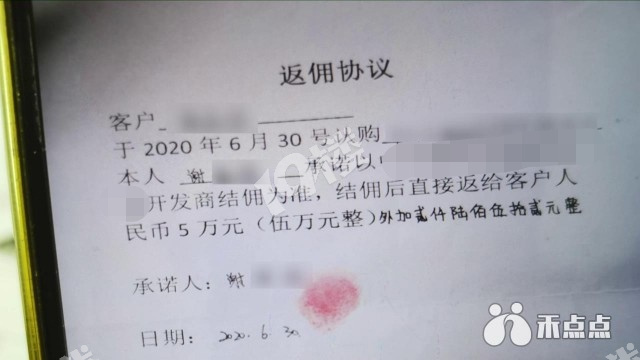 返佣协议
客户
于 2020 年 6 月 30 号认购
本人 谢 承诺以
开发商结佣为准，结佣后直接返给客户人
民币 5 万元（伍万元整）外加贰仟陆佰伍拾贰元整
承诺人：谢
日期：2020.6.30
19楼
禾点点